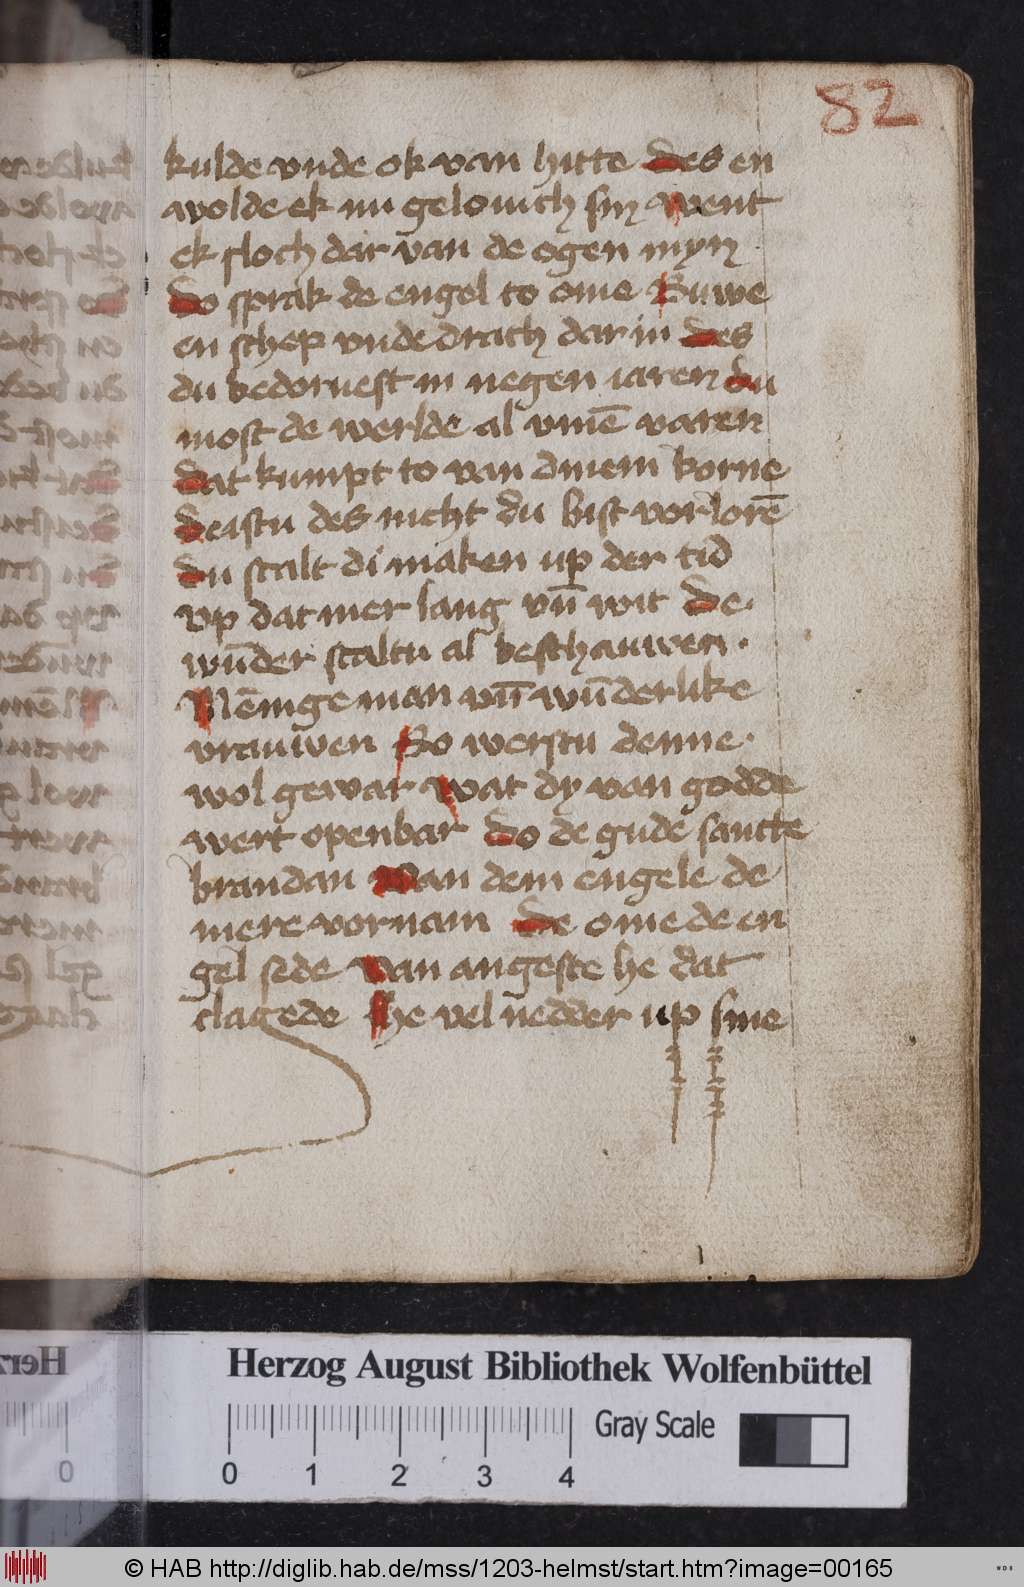 82
kulde vnde ok van hitte Des en
wolde ek nu gelouich sin Went
ek sloch dar van de ogen myn
Do sprak de engel to ome Buwe
en schep vnde drach dar in Des
du bedoruest in negen iaren Du
most de werlde al vme varen
Dat kumpt to van dinem korne
Deistu des nicht du bist vorlorē
Du scalt di maken up der tid
vp dat mer lang vn̄ wit De
wūder scaltu al beschauwen
Mēnige man vn̄ wūderlike
vrauwen So werstu denne
wol gewar Wat dy van godde
wert openbar Do de gude sancte
brandan Van dem engele de
mere vornam De ome de en
gel sede Van angeste he dat
clagede He vel nedder up sine
Herzog August Bibliothek Wolfenbüttel
Gray Scale
0 1 2 3 4
© HAB http://diglib.hab.de/mss/1203-helmst/start.htm?image=00165